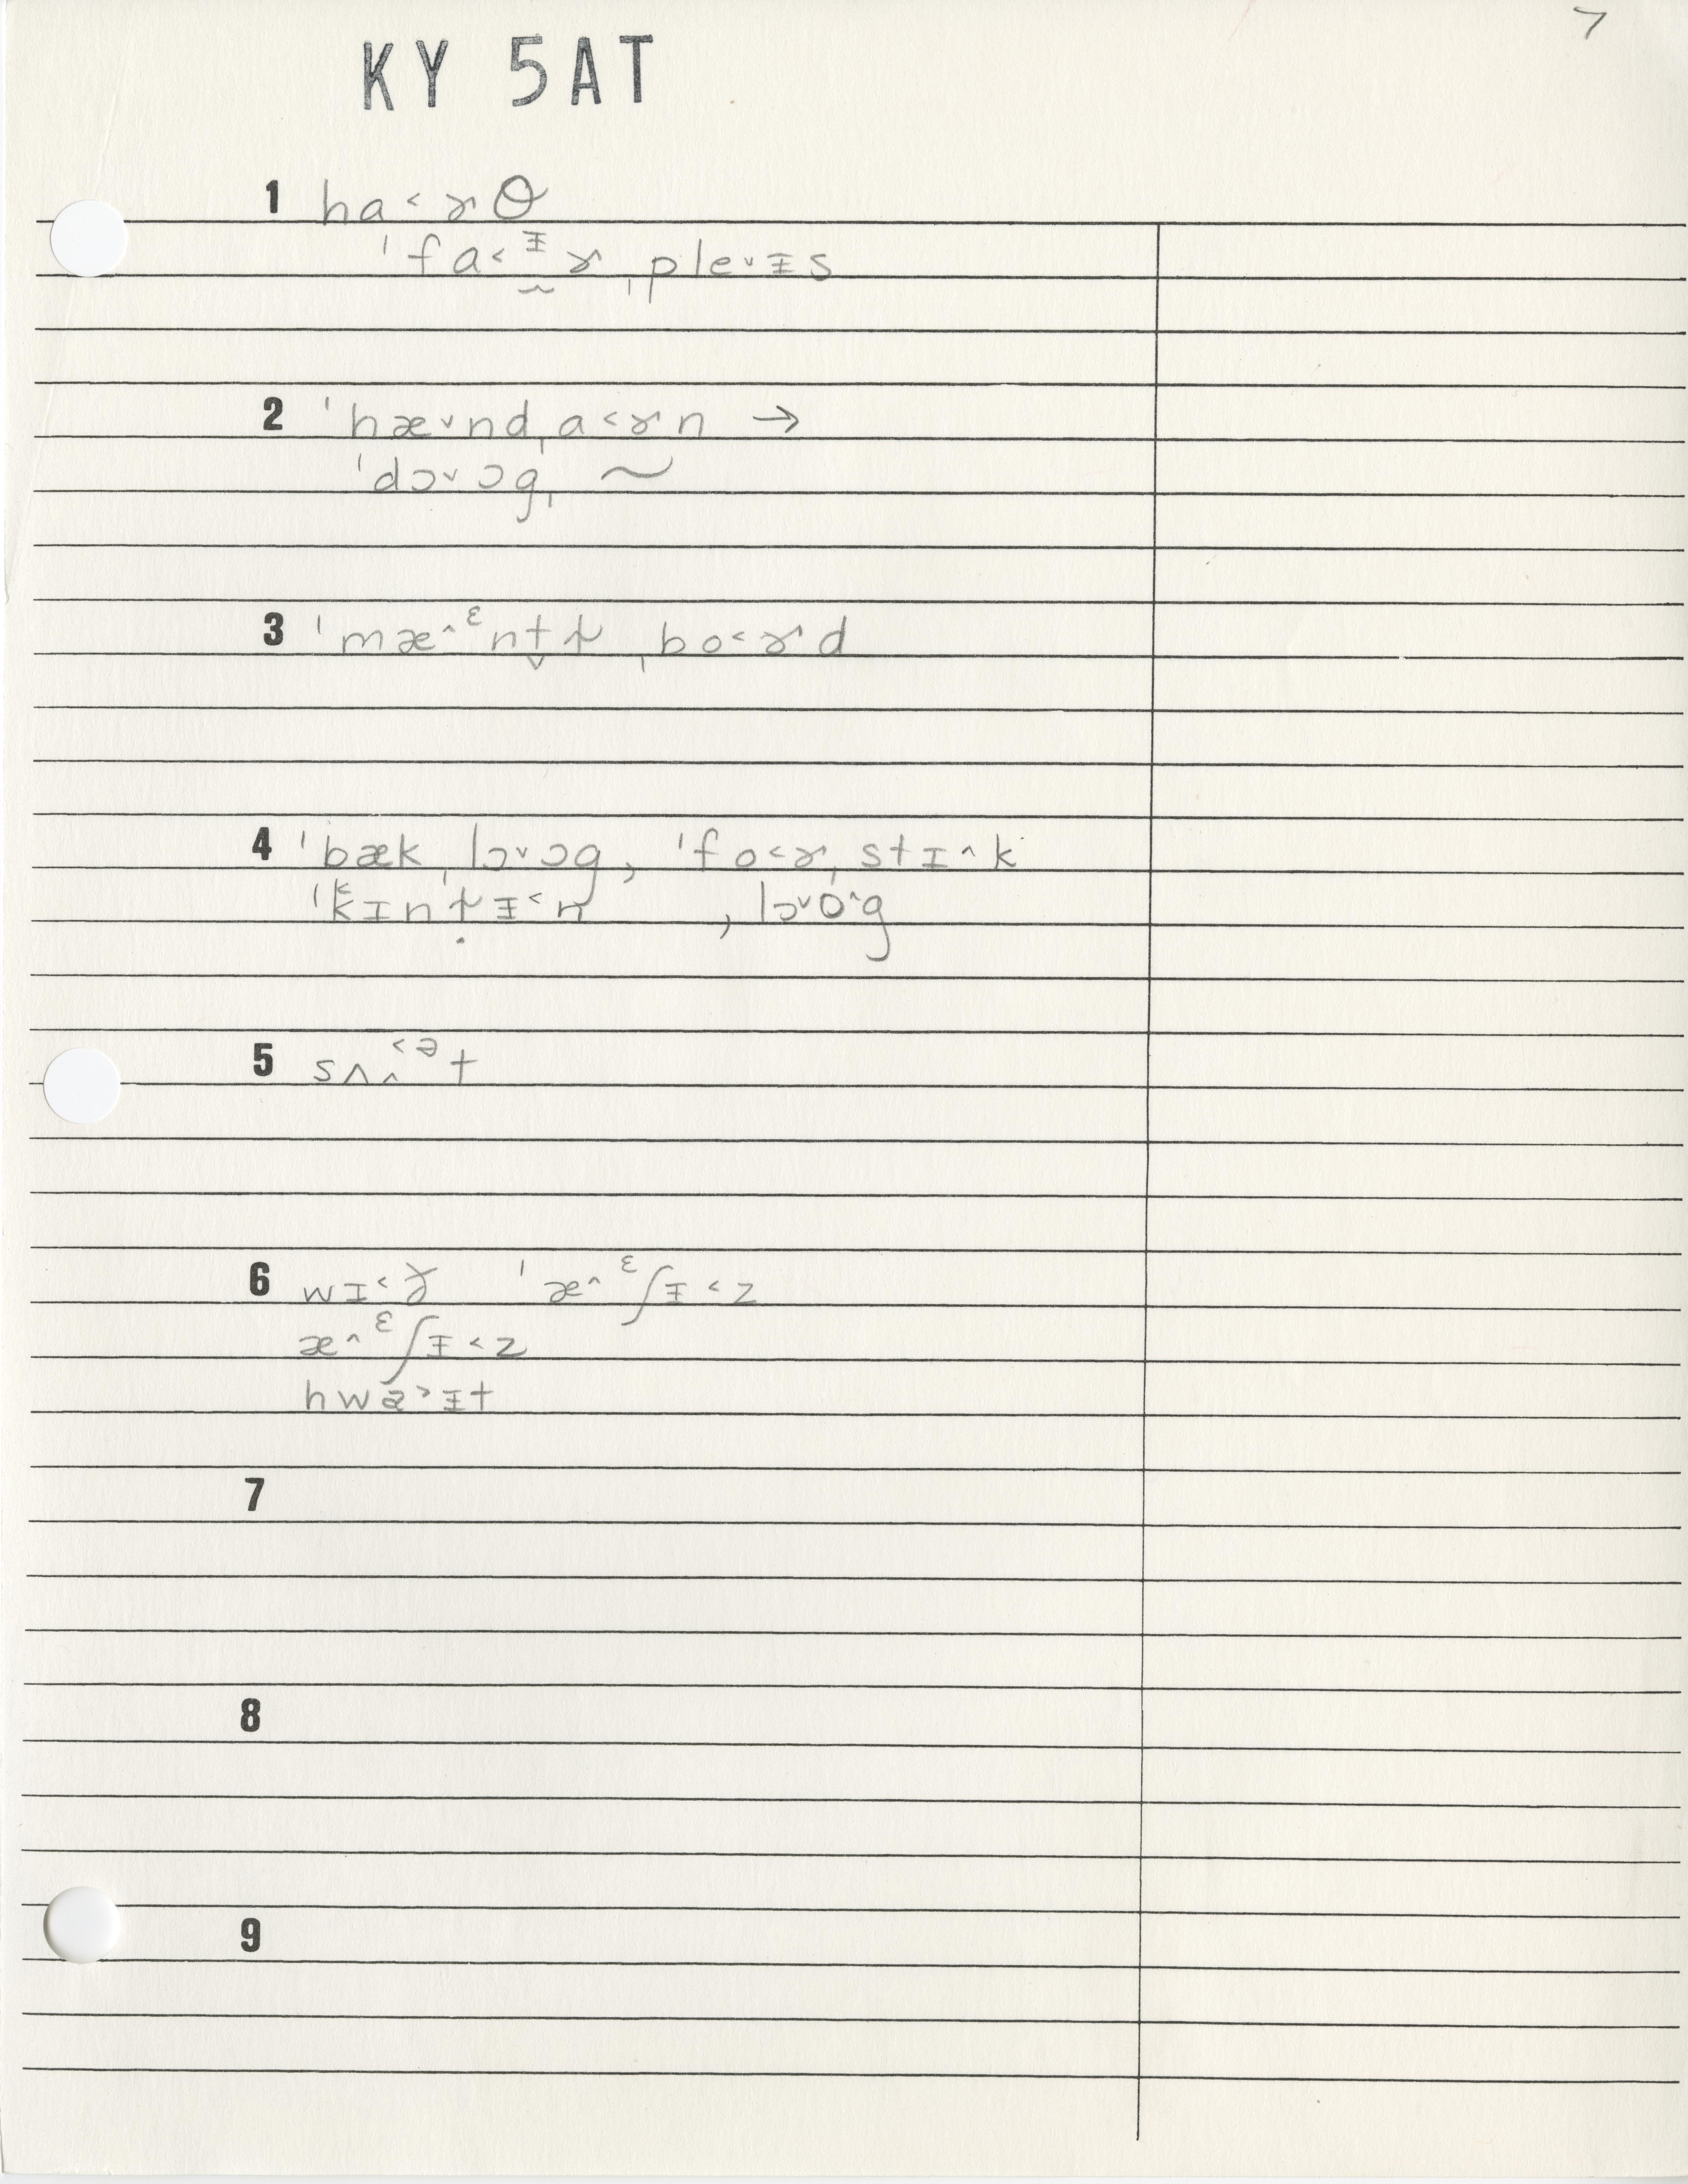 7
KY 5AT
1 ha˂ɚθ
ˈfa˂ᵻɚˌple˅ᵻs
2 ˈhæ˅ndˌa˂ɚn →
ˈdɔ˅ɔgˌ ~
3 ˈmæ˄ᵋnt̬ɚˌbo˂ɚd
4 ˈbækˌlɔ˅ɔg, ˈfo˂ɚˌstɪ˄k
ˈkɪntᵻ˂n ˌlɔ˅o˄g
5 sʌ˄˂ᵊt
6 wɪ˂ɣ ˈæ˄ᵋʃᵻ˂z
æ˄ᵋʃᵻ˂z
hwa˃ᵻt
7
8
9